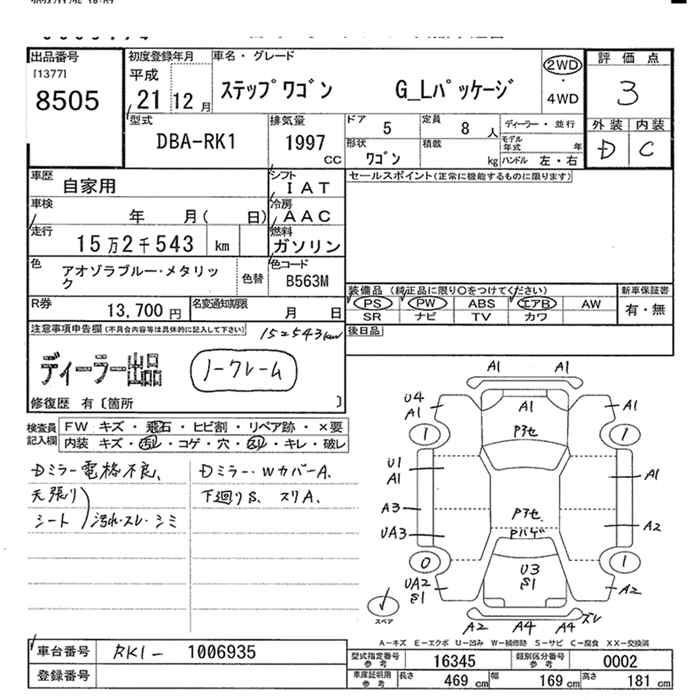 出品番号
[1377]
8505
初度登録年月
平成
21年12月
車名・グレード
ステップワゴン G_Lパッケージ
2WD
・
4WD
評価点
3
外装 内装
D C
型式
DBA-RK1
排気量
1997
CC
ドア 5
定員 8 人
ディーラー・並行
形状 ワゴン
積載 kg
モデル年式 年
ハンドル 左・右
車歴
自家用
シフト
IAT
車検
年 月( 日)
冷房
AAC
走行
15万2千543 km
燃料
ガソリン
色
アオゾラブルー・メタリック
色替
色コード
B563M
R券
13,700円
名変通知期限
月 日
セールスポイント(正常に機能するものに限ります)
装備品 (純正品に限り○をつけてください)
PS PW ABS エアB AW
SR ナビ TV カワ
新車保証書
有・無
後日品
注意事項申告欄(不具合内容等は具体的に記入して下さい)
152543km
ディーラー出品
ノークレーム
修復歴 有〔箇所 〕
検査員記入欄
FW キズ・飛石・ヒビ割・リペア跡・×要
内装 キズ・汚れ・コゲ・穴・スレ・キレ・破レ
Dミラー電格不良、
天張り
シート
汚れ・スレ・シミ
Dミラー・WカバーA、
下廻りS、スリA、
A1 A1
U4
A1
A1
A1
1 1
Pアセ
U1
A1
A1
A3
A2
UA3
Pアセ
Pハゲ
0 1
U3
S1
UA2
S1
A2
スペア
A2 A4 A4 ズレ
A-キズ E-エクボ U-凹み W-補修跡 S-サビ C-腐食 XX-交換済
車台番号
RK1- 1006935
登録番号
型式指定番号
参考
16345
類別区分番号
参考
0002
車庫証明用
参考
長さ 469 cm 幅 169 cm 高さ 181 cm